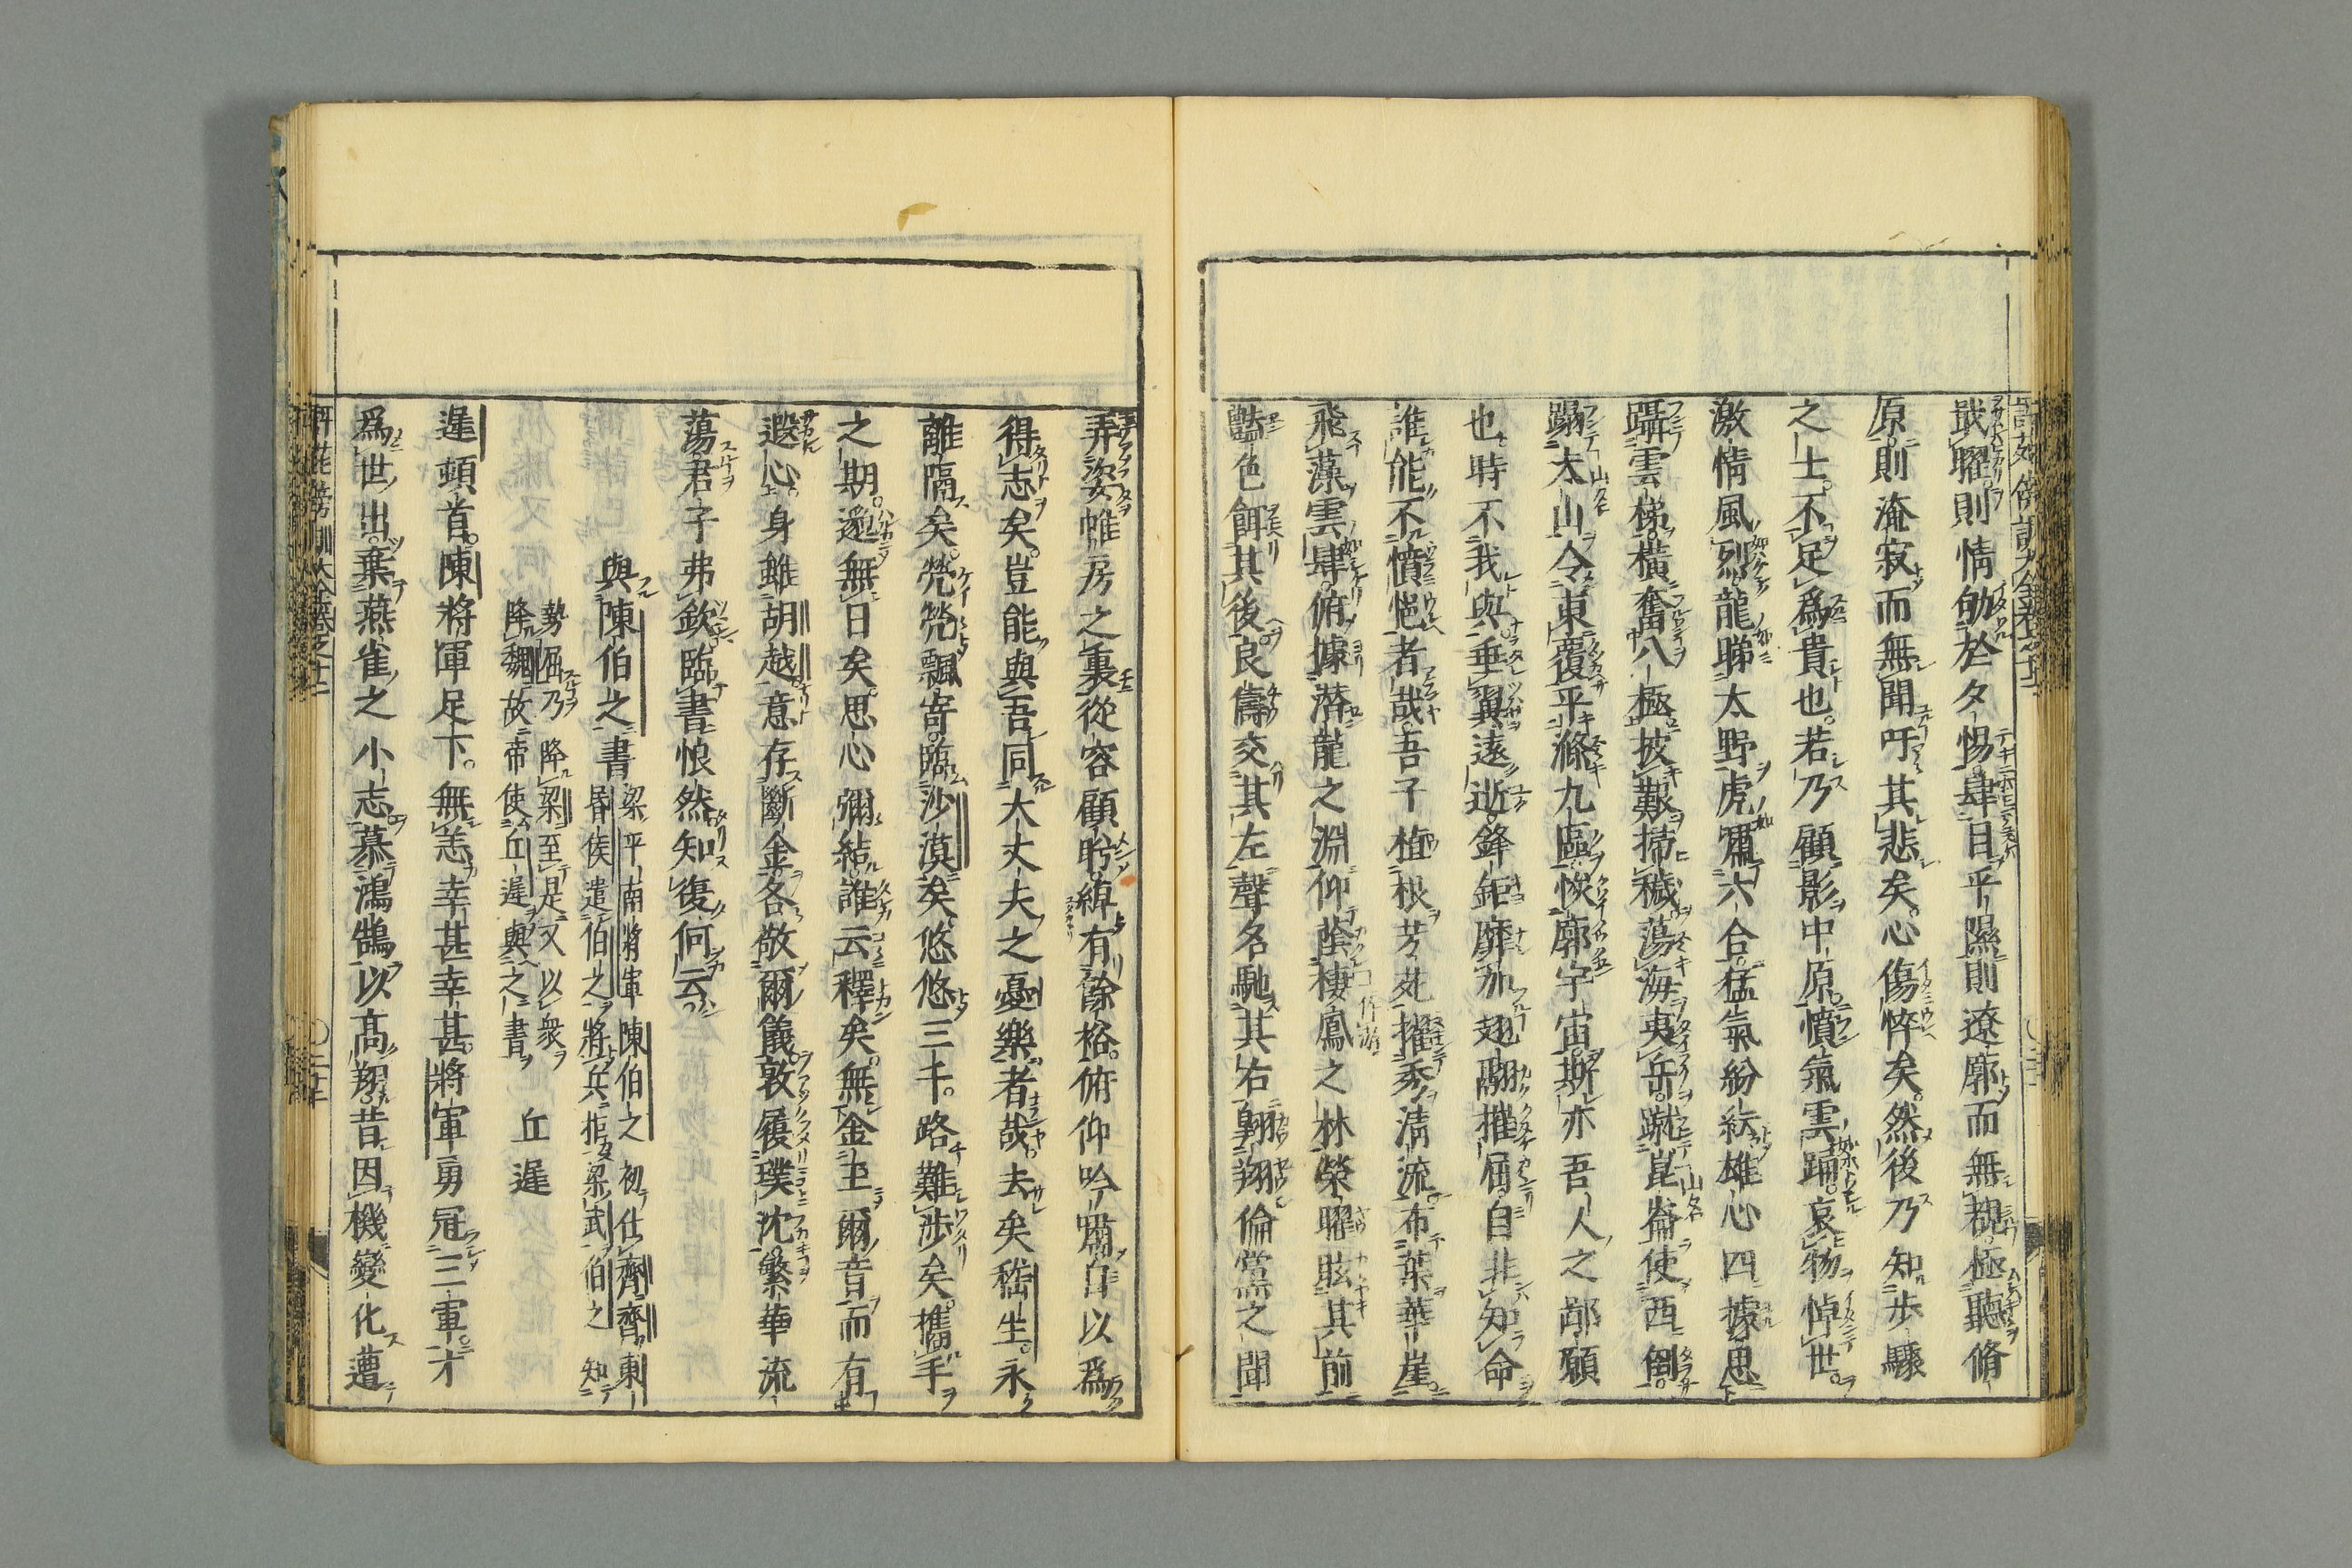 戢曜則情劬於夕惕肆目平隰則遼廓而無覩極聽脩
原則淹寂而無聞吁其悲矣心傷悴矣然後乃知步驟
之士不足爲貴也若乃顧影中原憤氣雲踊哀物悼世
激情風烈龍睇太野虎嘯六合猛氣紛紜雄心四據思
躡雲梯橫奮八極披艱掃穢蕩海夷岳蹴崑崙使西倒
蹋太山令東覆平滌九區恢廓宇宙斯亦吾人之鄙願
也時不我與垂翼遠逝鋒鉅靡加翅翮摧屈自非知命
誰能不憤悒者哉吾子植根芳苑擢秀淸流布葉華崖
飛藻雲肆俯據潛龍之淵仰蔭棲鳳之林榮曜眩其前
豔色餌其後良儔交其左聲名馳其右翺翔倫黨之間
弄姿帷房之裏從容顧眄綽有餘裕俯仰吟嘯自以爲
得志矣豈能與吾同大丈夫之憂樂者哉去矣嵇生永
離隔矣煢煢飄寄臨沙漠矣悠悠三千路難涉矣攜手
之期邈無日矣思心彌結誰云釋矣無金玉爾音而有
遐心身雖胡越意存斷金各敬爾儀敦履璞沈繁華流
蕩君子弗欽臨書悢然知復何云
與陳伯之書
梁平南將軍陳伯之初仕齊齊東
昏侯遣伯之將兵拒梁武伯之知
勢屈乃降梁至是又以衆
降魏故帝使丘遲與之書
丘遲
遲頓首陳將軍足下無恙幸甚幸甚將軍勇冠三軍才
爲世出棄燕雀之小志慕鴻鵠以高翔昔因機變化遭